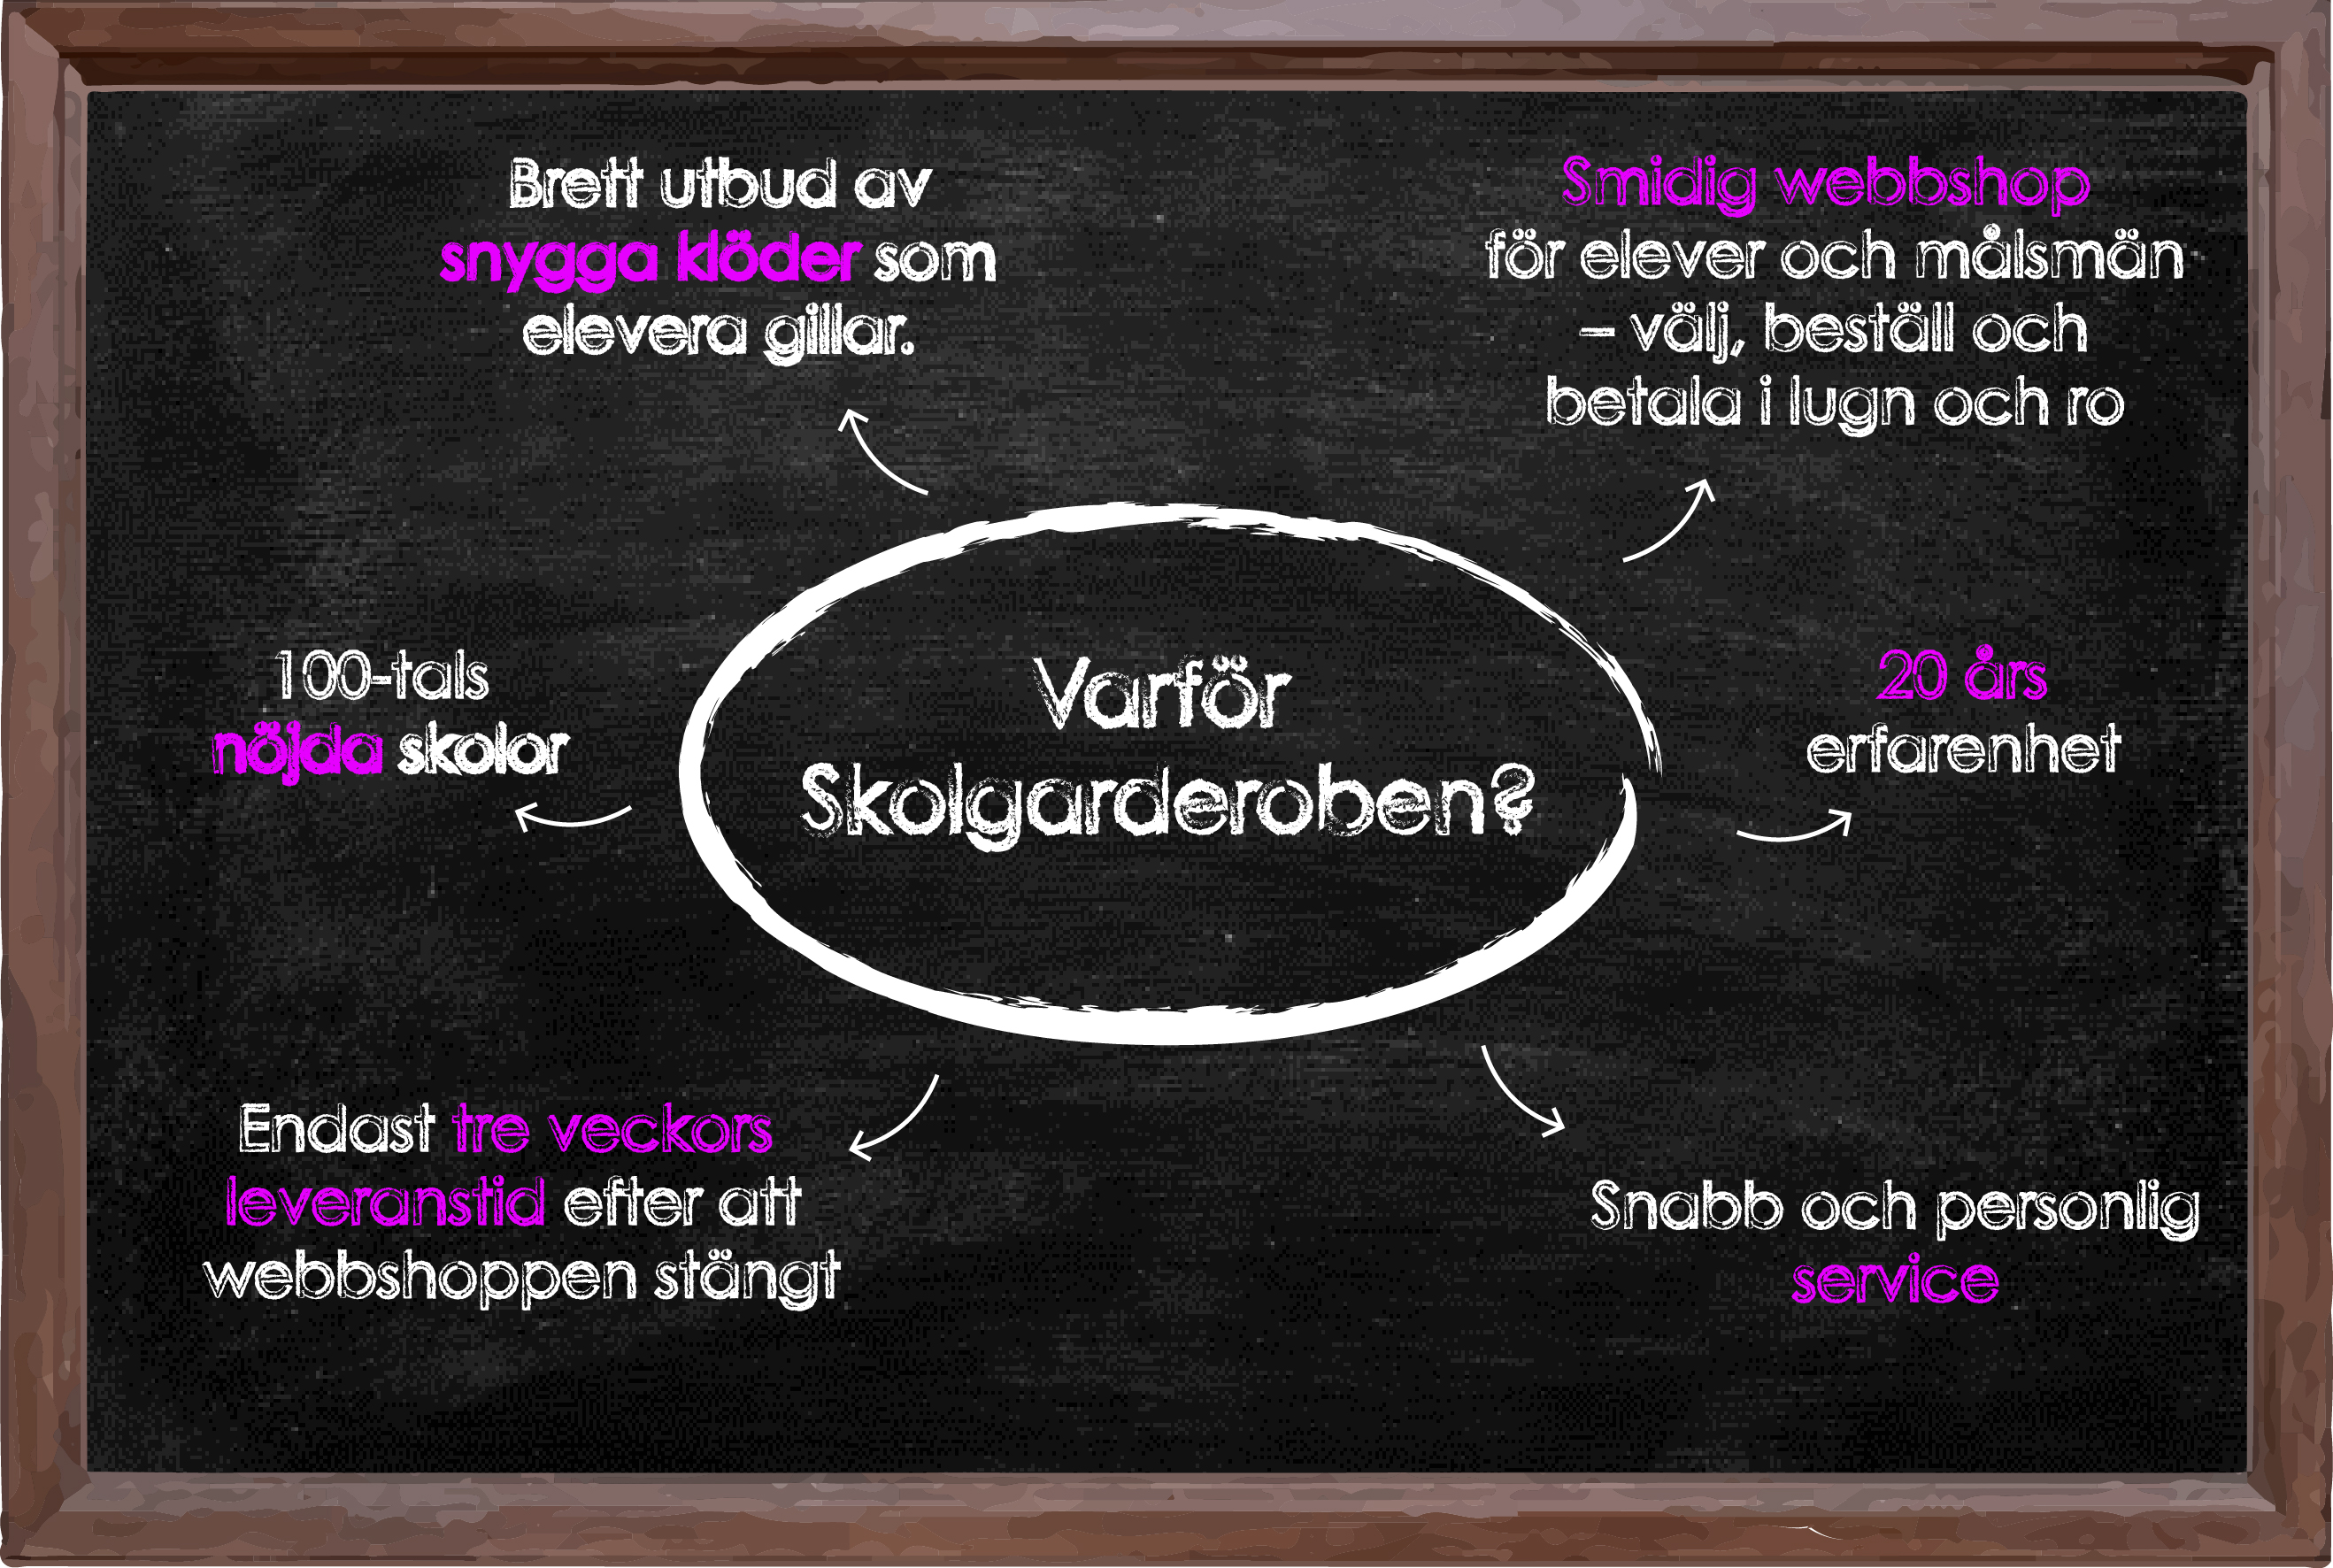 Brett utbud av
snygga klöder som
elevera gillar.
Smidig webbshop
för elever och målsmän
– välj, beställ och
betala i lugn och ro
100-tals
nöjda skolor
Varför
Skolgarderoben?
20 års
erfarenhet
Endast tre veckors
leveranstid efter att
webbshoppen stängt
Snabb och personlig
service